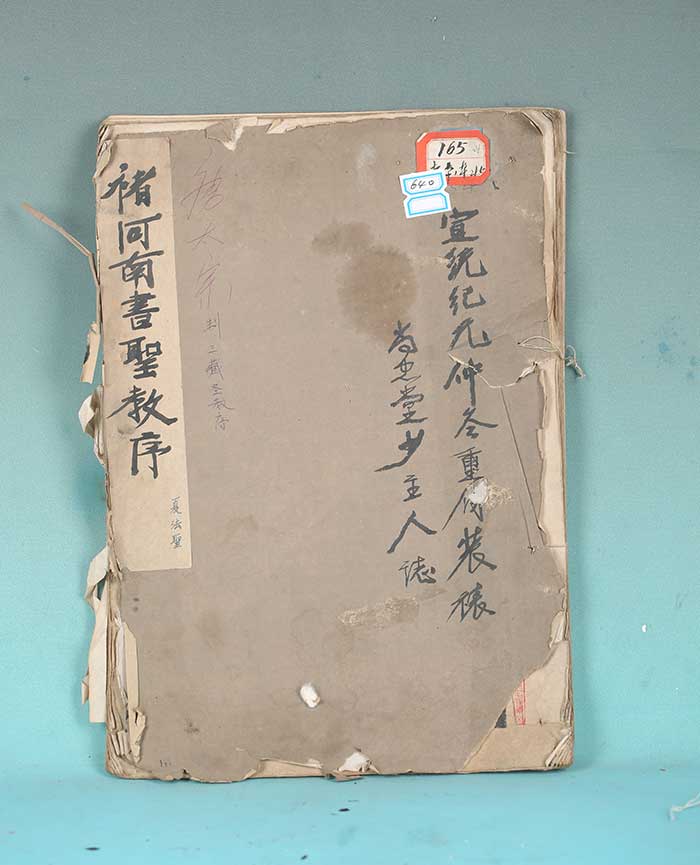 165
640
宣統紀元仲冬重修装裱
尚忠堂少主人誌
唐太宗
三藏圣教序
褚河南書聖教序
夏法聖